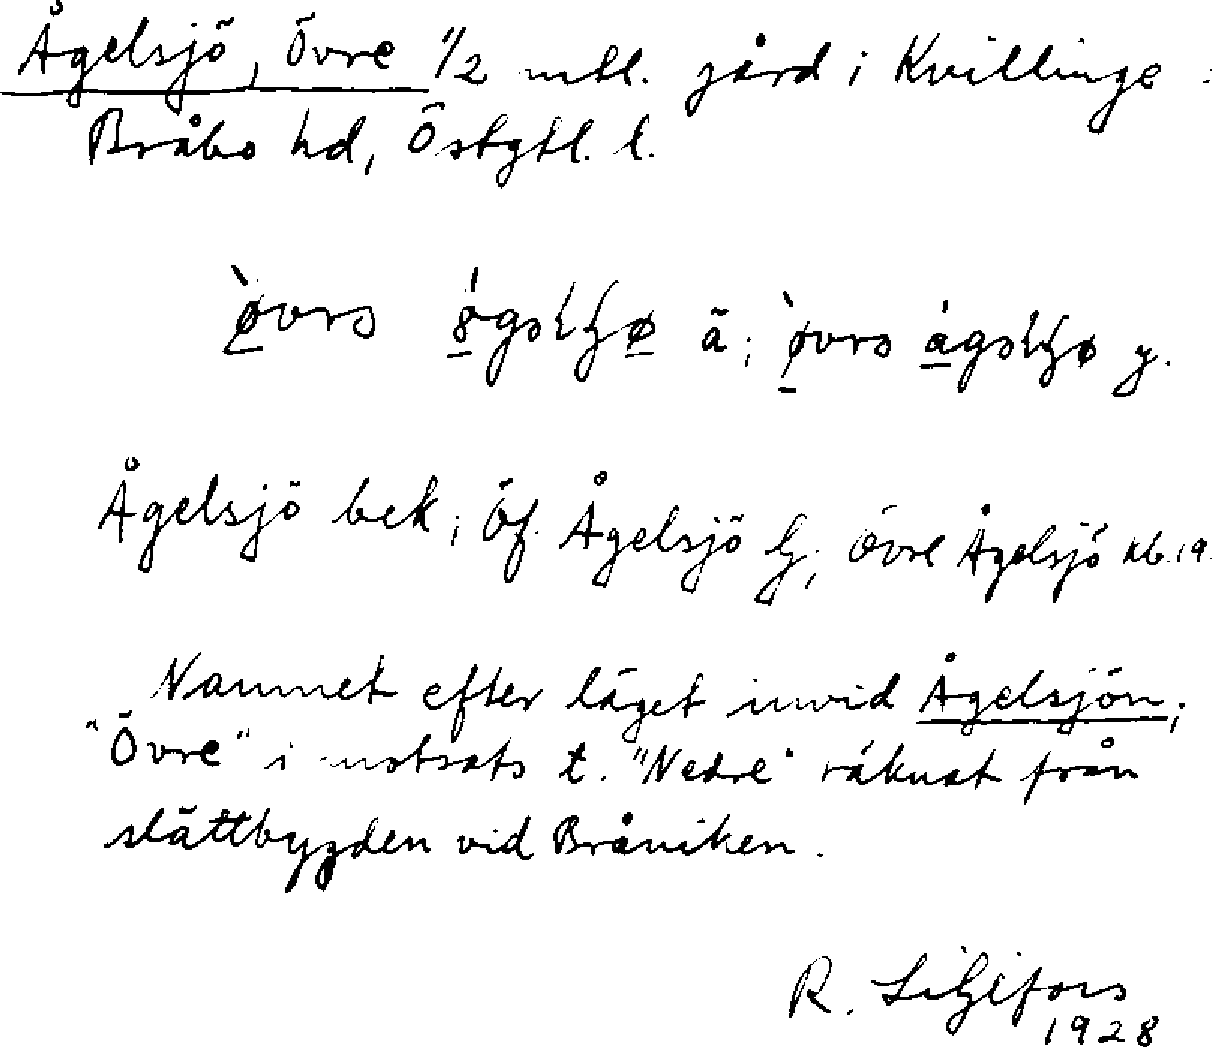 Ågelsjö, Övre 1/2 mtl. gård i Kvillinge
Bråbo hd, Östgtl. l.
ä; y.
Ågelsjö bek; Öf. Ågelsjö Övre Ågelsjö kb. 19.
Namnet efter läget invid Ågelsjön;
"Övre" i motsats t. "Nedre" räknat från
slättbygden vid Bråviken.
R. Liljefors
1928